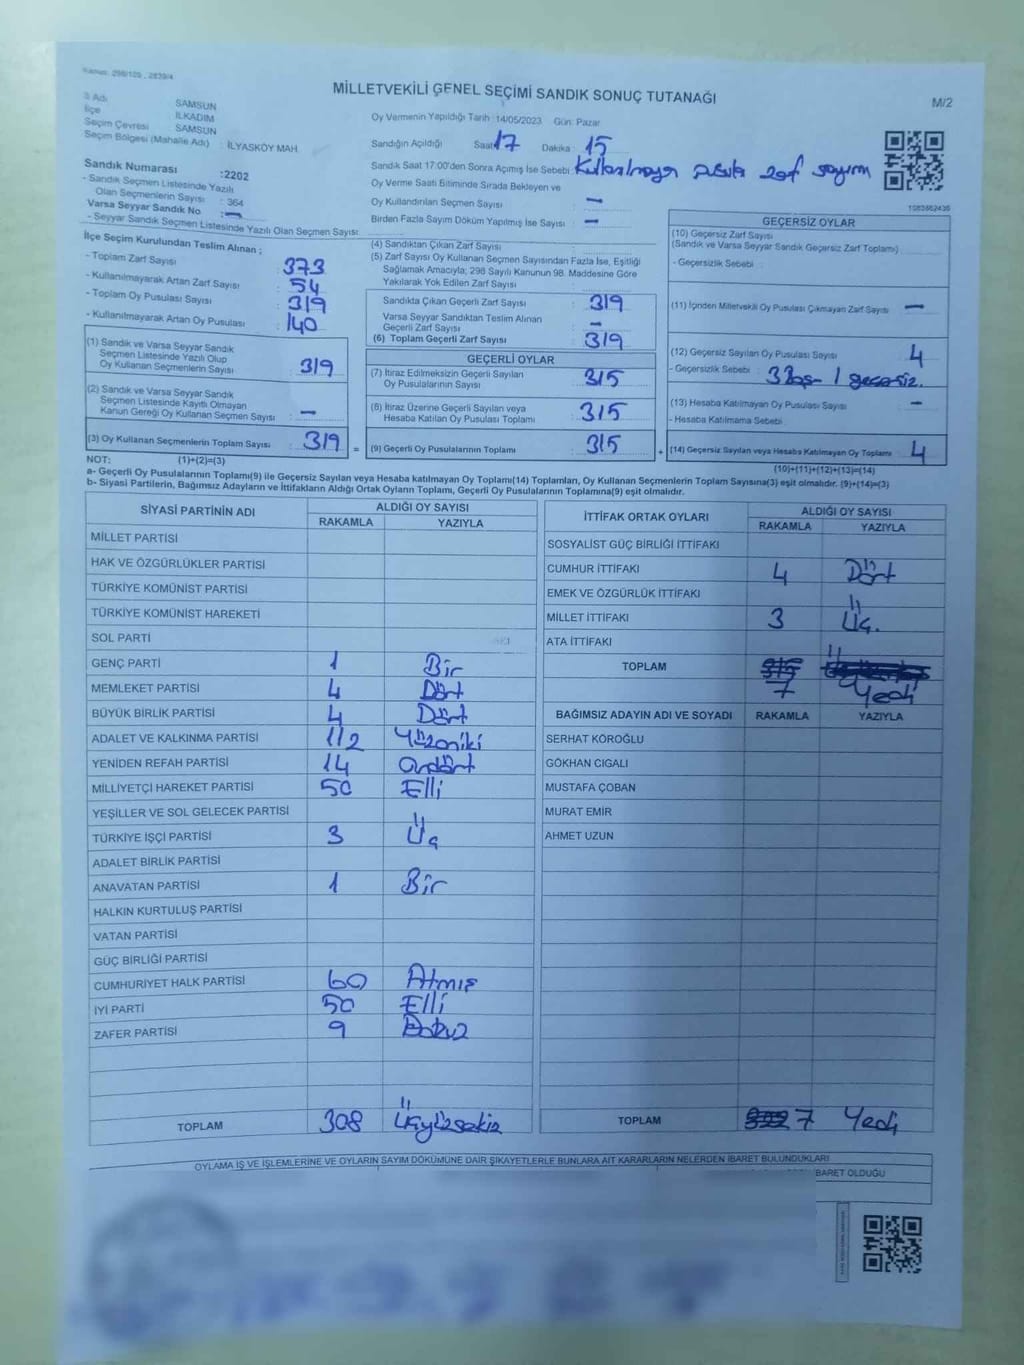 Kanun: 298/105 , 2839/4
MİLLETVEKİLİ GENEL SEÇİMİ SANDIK SONUÇ TUTANAĞI
M/2
İl Adı SAMSUN
İlçe İLKADIM
Seçim Çevresi : SAMSUN
Seçim Bölgesi (Mahalle Adı) : İLYASKÖY MAH.
Oy Vermenin Yapıldığı Tarih : 14/05/2023 Gün: Pazar
Sandığın Açıldığı Saat 17 Dakika : 15
Sandık Saat 17:00'den Sonra Açımış İse Sebebi: Kullanılmayan pusula zarf sayım
Oy Verme Saati Bitiminde Sırada Bekleyen ve
Oy Kullandırılan Seçmen Sayısı : -
Birden Fazla Sayım Döküm Yapılmış İse Sayısı : -
Sandık Numarası :2202
- Sandık Seçmen Listesinde Yazılı
Olan Seçmenlerin Sayısı : 364
Varsa Seyyar Sandık No : -
- Seyyar Sandık Seçmen Listesinde Yazılı Olan Seçmen Sayısı:
1083862436
İlçe Seçim Kurulundan Teslim Alınan ;
- Toplam Zarf Sayısı : 373
- Kullanılmayarak Artan Zarf Sayısı : 54
- Toplam Oy Pusulası Sayısı : 319
- Kullanılmayarak Artan Oy Pusulası : 140
(1) Sandık ve Varsa Seyyar Sandık
Seçmen Listesinde Yazılı Olup
Oy Kullanan Seçmenlerin Sayısı : 319
(2) Sandık ve Varsa Seyyar Sandık
Seçmen Listesinde Kayıtlı Olmayan
Kanun Gereği Oy Kullanan Seçmen Sayısı : -
(3) Oy Kullanan Seçmenlerin Toplam Sayısı : 319 =
(4) Sandıktan Çıkan Zarf Sayısı :
(5) Zarf Sayısı Oy Kullanan Seçmen Sayısından Fazla İse, Eşitliği
Sağlamak Amacıyla; 298 Sayılı Kanunun 98. Maddesine Göre
Yakılarak Yok Edilen Zarf Sayısı :
Sandıkta Çıkan Geçerli Zarf Sayısı : 319
Varsa Seyyar Sandıktan Teslim Alınan
Geçerli Zarf Sayısı : -
(6) Toplam Geçerli Zarf Sayısı : 319
GEÇERLİ OYLAR
(7) İtiraz Edilmeksizin Geçerli Sayılan
Oy Pusulalarının Sayısı : 315
(8) İtiraz Üzerine Geçerli Sayılan veya
Hesaba Katılan Oy Pusulaları Toplamı : 315
(9) Geçerli Oy Pusulalarının Toplamı : 315 +
GEÇERSİZ OYLAR
(10) Geçersiz Zarf Sayısı
(Sandık ve Varsa Seyyar Sandık Geçersiz Zarf Toplamı) :
- Geçersizlik Sebebi :
(11) İçinden Milletvekili Oy Pusulası Çıkmayan Zarf Sayısı : -
(12) Geçersiz Sayılan Oy Pusulası Sayısı : 4
- Geçersizlik Sebebi : 3 Boş - 1 geçersiz.
(13) Hesaba Katılmayan Oy Pusulası Sayısı : -
- Hesaba Katılmama Sebebi :
(14) Geçersiz Sayılan veya Hesaba Katılmayan Oy Toplamı : 4
NOT: (1)+(2)=(3)
(10)+(11)+(12)+(13)=(14)
a- Geçerli Oy Pusulalarının Toplamı(9) ile Geçersiz Sayılan veya Hesaba katılmayan Oy Toplamı(14) Toplamları, Oy Kullanan Seçmenlerin Toplam Sayısına(3) eşit olmalıdır. (9)+(14)=(3)
b- Siyasi Partilerin, Bağımsız Adayların ve İttifakların Aldığı Ortak Oyların Toplamı, Geçerli Oy Pusulalarının Toplamına(9) eşit olmalıdır.
SİYASİ PARTİNİN ADI ALDIĞI OY SAYISI
RAKAMLA YAZIYLA
MİLLET PARTİSİ
HAK VE ÖZGÜRLÜKLER PARTİSİ
TÜRKİYE KOMÜNİST PARTİSİ
TÜRKİYE KOMÜNİST HAREKETİ
SOL PARTİ
GENÇ PARTİ 1 Bir
MEMLEKET PARTİSİ 4 Dört
BÜYÜK BİRLİK PARTİSİ 4 Dört
ADALET VE KALKINMA PARTİSİ 112 Yüzoniki
YENİDEN REFAH PARTİSİ 14 ondört
MİLLİYETÇİ HAREKET PARTİSİ 50 Elli
YEŞİLLER VE SOL GELECEK PARTİSİ
TÜRKİYE İŞÇİ PARTİSİ 3 Üç
ADALET BİRLİK PARTİSİ
ANAVATAN PARTİSİ 1 Bir
HALKIN KURTULUŞ PARTİSİ
VATAN PARTİSİ
GÜÇ BİRLİĞİ PARTİSİ
CUMHURİYET HALK PARTİSİ 60 Atmış
İYİ PARTİ 50 Elli
ZAFER PARTİSİ 9 Dokuz
TOPLAM 308 Üçyüzsekiz
İTTİFAK ORTAK OYLARI ALDIĞI OY SAYISI
RAKAMLA YAZIYLA
SOSYALİST GÜÇ BİRLİĞİ İTTİFAKI
CUMHUR İTTİFAKI 4 Dört
EMEK VE ÖZGÜRLÜK İTTİFAKI
MİLLET İTTİFAKI 3 Üç.
ATA İTTİFAKI
TOPLAM 7 Yedi
BAĞIMSIZ ADAYIN ADI VE SOYADI RAKAMLA YAZIYLA
SERHAT KÖROĞLU
GÖKHAN CIGALI
MUSTAFA ÇOBAN
MURAT EMİR
AHMET UZUN
TOPLAM 7 Yedi
OYLAMA İŞ VE İŞLEMLERİNE VE OYLARIN SAYIM DÖKÜMÜNE DAİR ŞİKAYETLERLE BUNLARA AİT KARARLARIN NELERDEN İBARET BULUNDUKLARI
BARET OLDUĞU